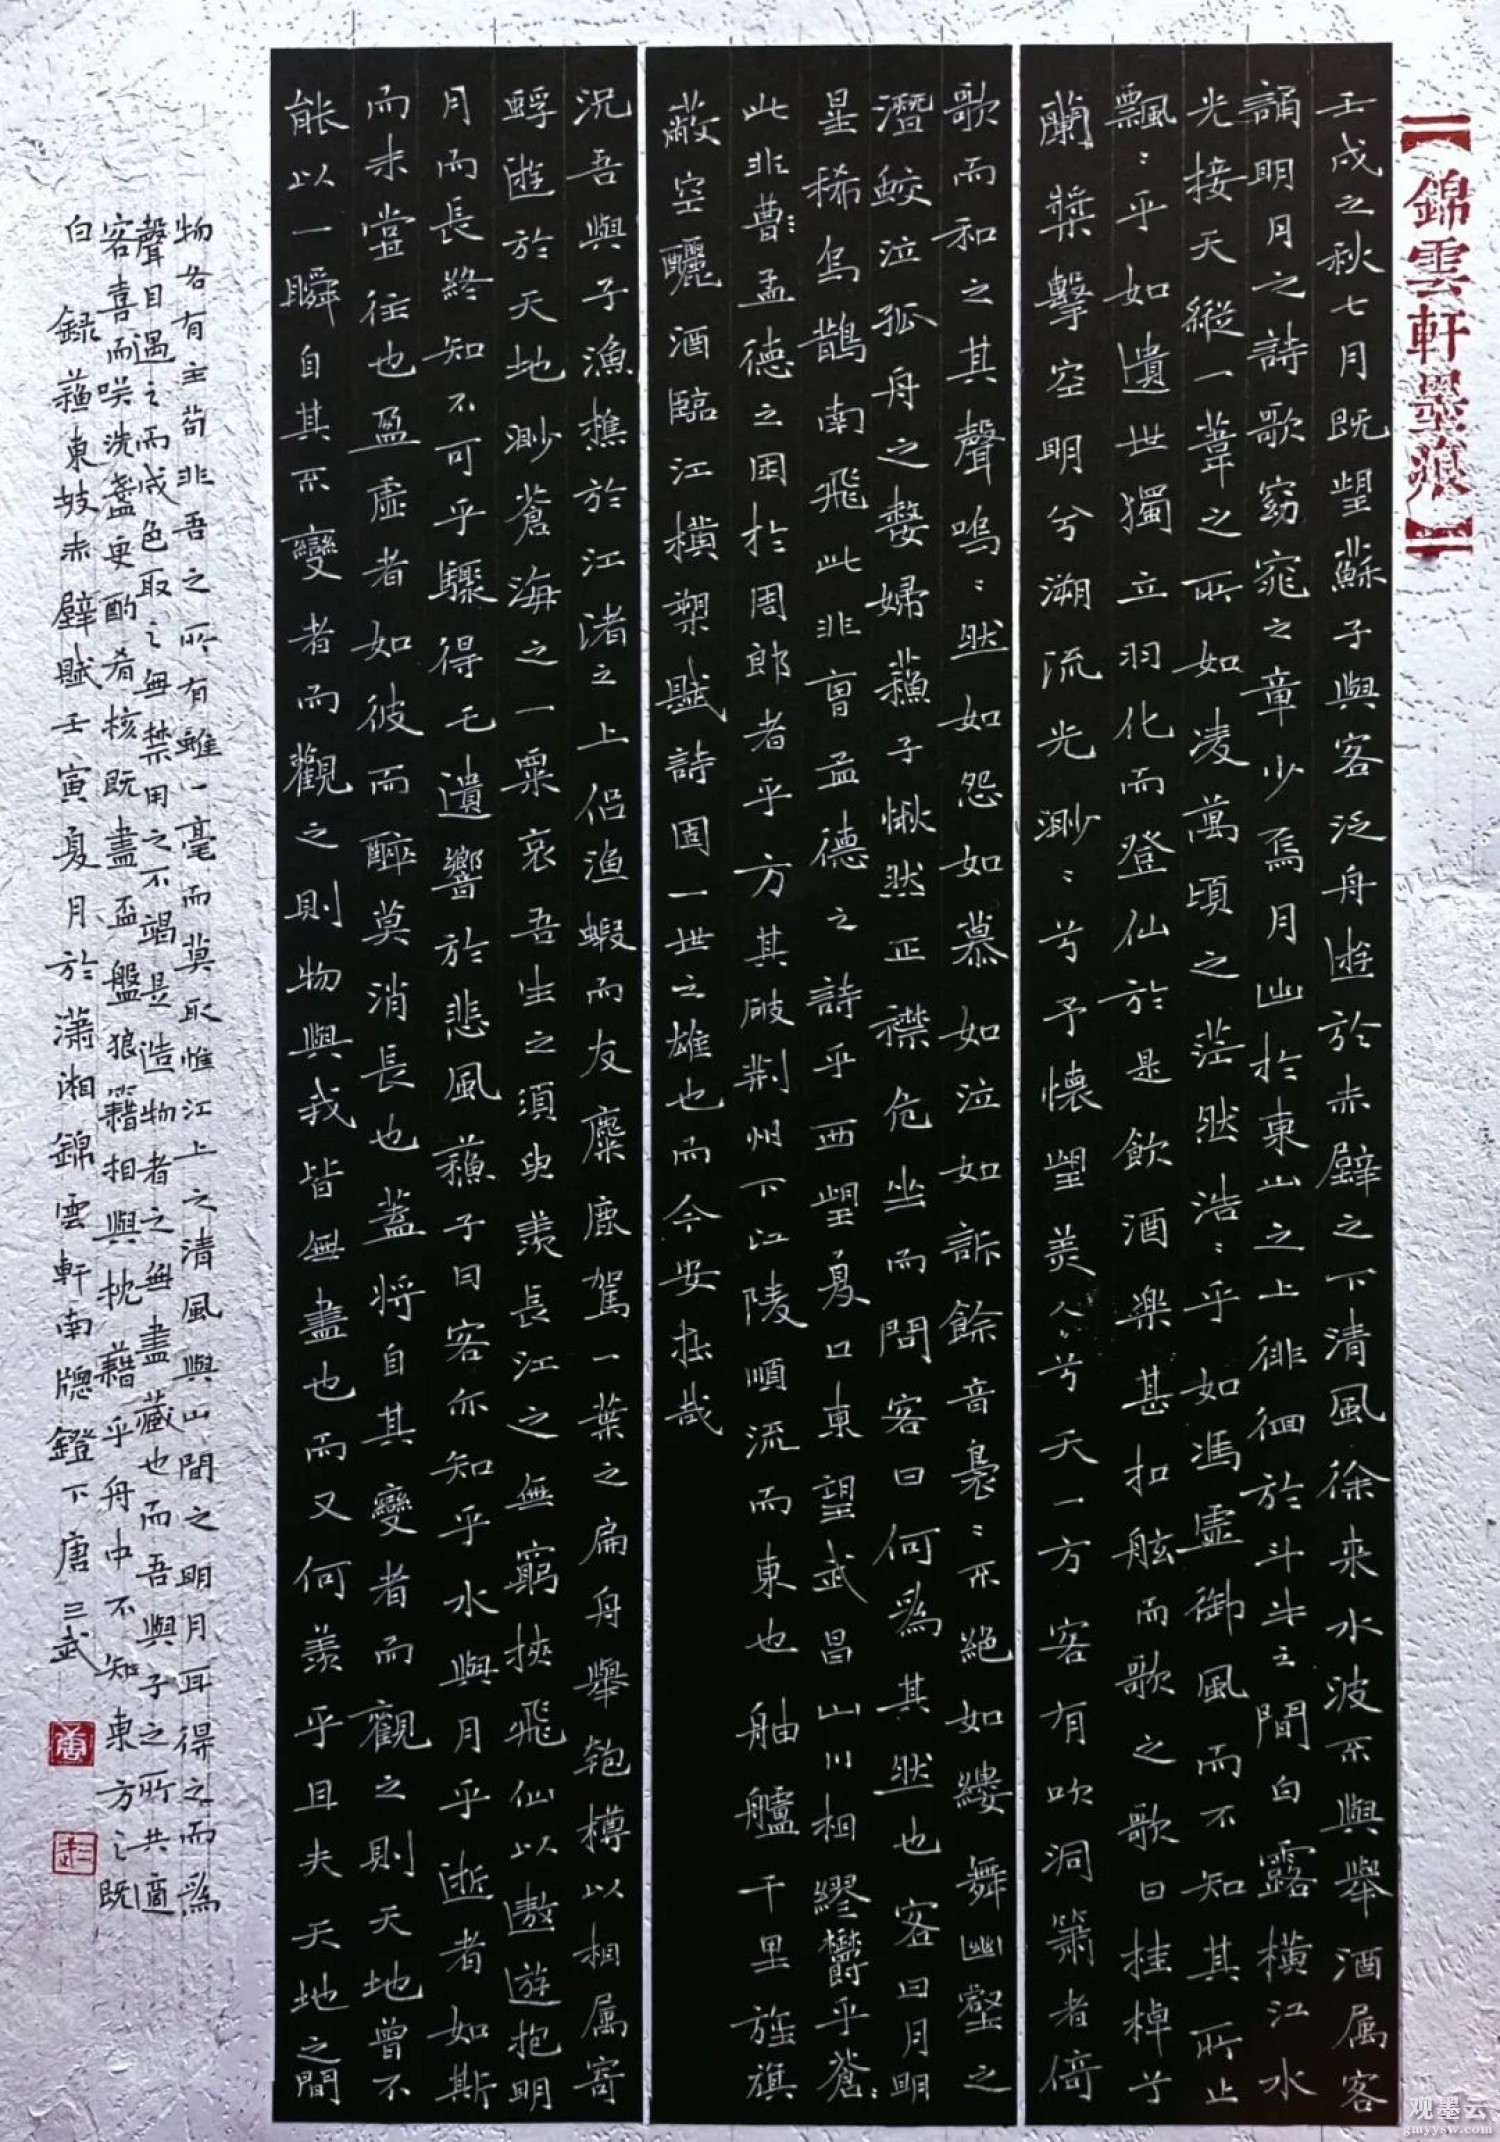 【錦雲軒墨痕】
壬戌之秋七月既望蘇子與客泛舟遊於赤壁之下清風徐來水波不興舉酒属客
誦明月之詩歌窈窕之章少焉月出於東山之上徘徊於斗牛之間白露橫江水
光接天縱一葦之所如凌萬頃之茫然浩:乎如馮虛御風而不知其所止
飄:乎如遺世獨立羽化而登仙於是飲酒樂甚扣舷而歌之歌曰桂棹兮
蘭槳擊空明兮溯流光渺:兮予懷望美人兮天一方客有吹洞簫者倚
歌而和之其聲嗚:然如怨如慕如泣如訴餘音裊:不絕如縷舞幽壑之
潛蛟泣孤舟之嫠婦蘇子愀然正襟危坐而問客曰何為其然也客曰月明
星稀烏鵲南飛此非曹孟德之詩乎西望夏口東望武昌山川相繆鬱乎蒼:
此非曹:孟德之困於周郎者乎方其破荊州下江陵順流而東也舳艫千里旌旗
蔽空釃酒臨江橫槊賦詩固一世之雄也而今安在哉
況吾與子漁樵於江渚之上侶漁蝦而友麋鹿駕一葉之扁舟舉匏樽以相属寄
蜉遊於天地渺蒼海之一粟哀吾生之須臾羨長江之無窮挾飛仙以遨遊抱明
月而長終知不可乎驟得乇遺響於悲風蘇子曰客亦知乎水與月乎逝者如斯
而未嘗往也盈虛者如彼而醉莫消長也蓋將自其變者而觀之則天地曾不
能以一瞬自其不變者而觀之則物與我皆無盡也而又何羨乎且夫天地之間
物各有主苟非吾之所有雖一毫而莫取惟江上之清風與山間之明月耳得之而為
聲目遇之而成色取之無禁用之不竭是造物者之無盡藏也而吾與子之所共適
客喜而咲洗盞更酌肴核既盡盃盤狼籍相與枕藉乎舟中不知東方之既
白 録蘇東坡赤壁賦壬寅夏月於瀟湘錦雲軒南牕鐙下唐三武
观墨云
gmyysw.com